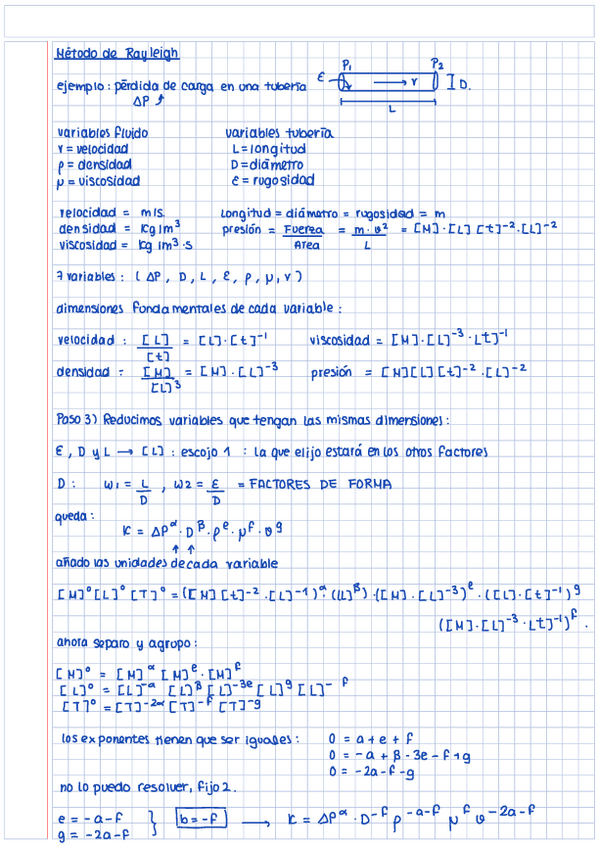 Método de Rayleigh
P₁ P₂
ejemplo: pérdida de carga en una tubería ε v D.
ΔP L
variables fluido variables tubería
v = velocidad L = longitud
ρ = densidad D = diámetro
μ = viscosidad ε = rugosidad
velocidad = m/s longitud = diámetro = rugosidad = m
densidad = kg/m³ presión = Fuerza/Area = m·v²/L = [M]·[L][t]⁻²·[L]⁻²
viscosidad = kg/m³·s
7 variables: (ΔP, D, L, ε, ρ, μ, v)
dimensiones fundamentales de cada variable:
velocidad: [L]/[t] = [L]·[t]⁻¹ viscosidad = [M]·[L]⁻³·[t]⁻¹
densidad = [M]/[L]³ = [M]·[L]⁻³ presión = [M][L][t]⁻²·[L]⁻²
Paso 3) Reducimos variables que tengan las mismas dimensiones:
ε, D y L → [L]: escojo 1 : la que elijo estará en los otros factores
D: w₁ = L/D, w₂ = ε/D = FACTORES DE FORMA
queda:
K = ΔP^α · D^β · ρ^e · μ^f · v^g
añado las unidades de cada variable
[M]⁰[L]⁰[T]⁰ = ([M][t]⁻²·[L]⁻¹)^α·([L]^β)·([M]·[L]⁻³)^e·([L]·[t]⁻¹)^g
([M]·[L]⁻³·[t]⁻¹)^f.
ahora separo y agrupo:
[M]⁰ = [M]^α [M]^e·[M]^f
[L]⁰ = [L]^-α [L]^β [L]^-3e [L]^g [L]^-f
[T]⁰ = [T]^-2α [T]^-f [T]^-g
los exponentes tienen que ser iguales: 0 = a + e + f
0 = -a + β - 3e - f + g
0 = -2a - f - g
no lo puedo resolver, fijo 2.
e = -a-f } b = -f → K = ΔP^α · D^-f ρ^-a-f μ^f v^-2a-f
g = -2a-f